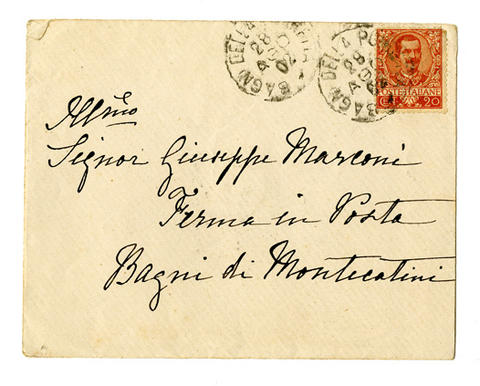 BAGNI DELLA PORRETTA
28
02
BAGNI DELLA PORRETTA
28
02
POSTE ITALIANE
20
Illmo
Signor Giuseppe Marconi
Ferma in Posta
Bagni di Montecatini